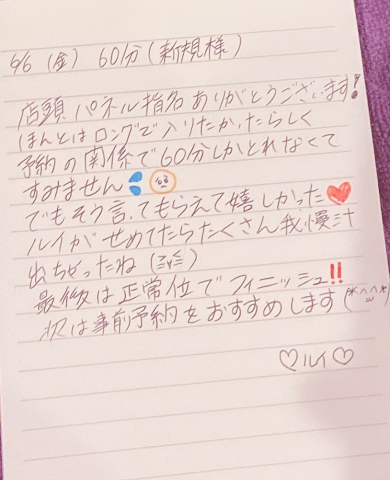 6/6 (金) 60分(新規様)
店頭パネル指名ありがとうございます!
ほんとはロングで入りたかったらしく
予約の関係で60分しかとれなくて
すみません💦🥺
でもそう言ってもらえて嬉しかった❤️
ルイがせめてたらたくさん我慢汁
出ちゃったね(≧∀≦)
最後は正常位でフィニッシュ‼️
次は事前予約をおすすめします(*^ω^*)
♡ルイ♡